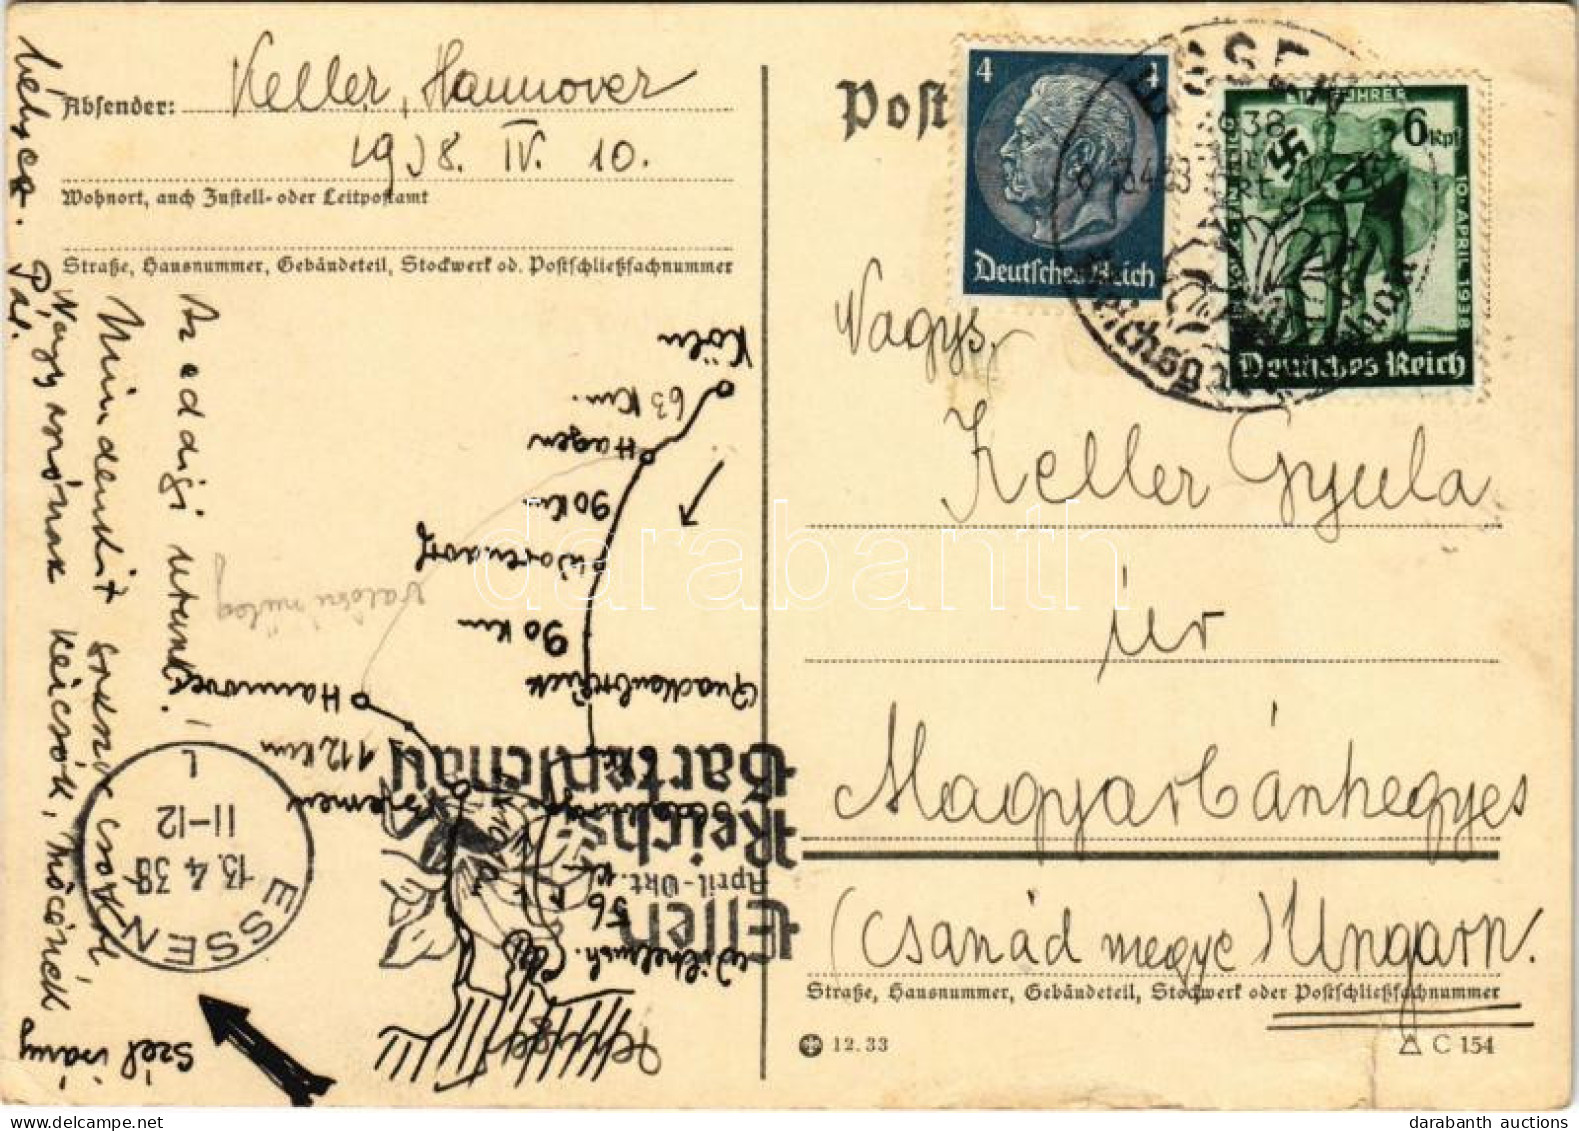 Absender: Keller, Hannover
1938. IV. 10.
Wohnort, auch Zustell- oder Leitpostamt
Straße, Hausnummer, Gebäudeteil, Stockwerk od. Postschließfachnummer
Az eddigi utunk!
Mindenkit sokszor csókol
Nagyanyónak kézcsók,
Pál.
Köln
63 Km.
Hagen
90 Km
90 Km
Quackenbrück
Hannover
112 Km
Bremen
56
Wilhelmsh.
Szél irány
ESSEN
13.4.38
11-12
L
Essen
April-Okt.
Reichs-
Gartenschau
Post
4
Deutsches Reich
ESSEN
1938
6 Rpf
10. APRIL 1938
Deutsches Reich
Nagys.
Keller Gyula
úr
Magyarbánhegyes
(Csanád megye) Ungarn.
Straße, Hausnummer, Gebäudeteil, Stockwerk oder Postschließfachnummer
12.33
C 154
darabanth
darabanth auctions